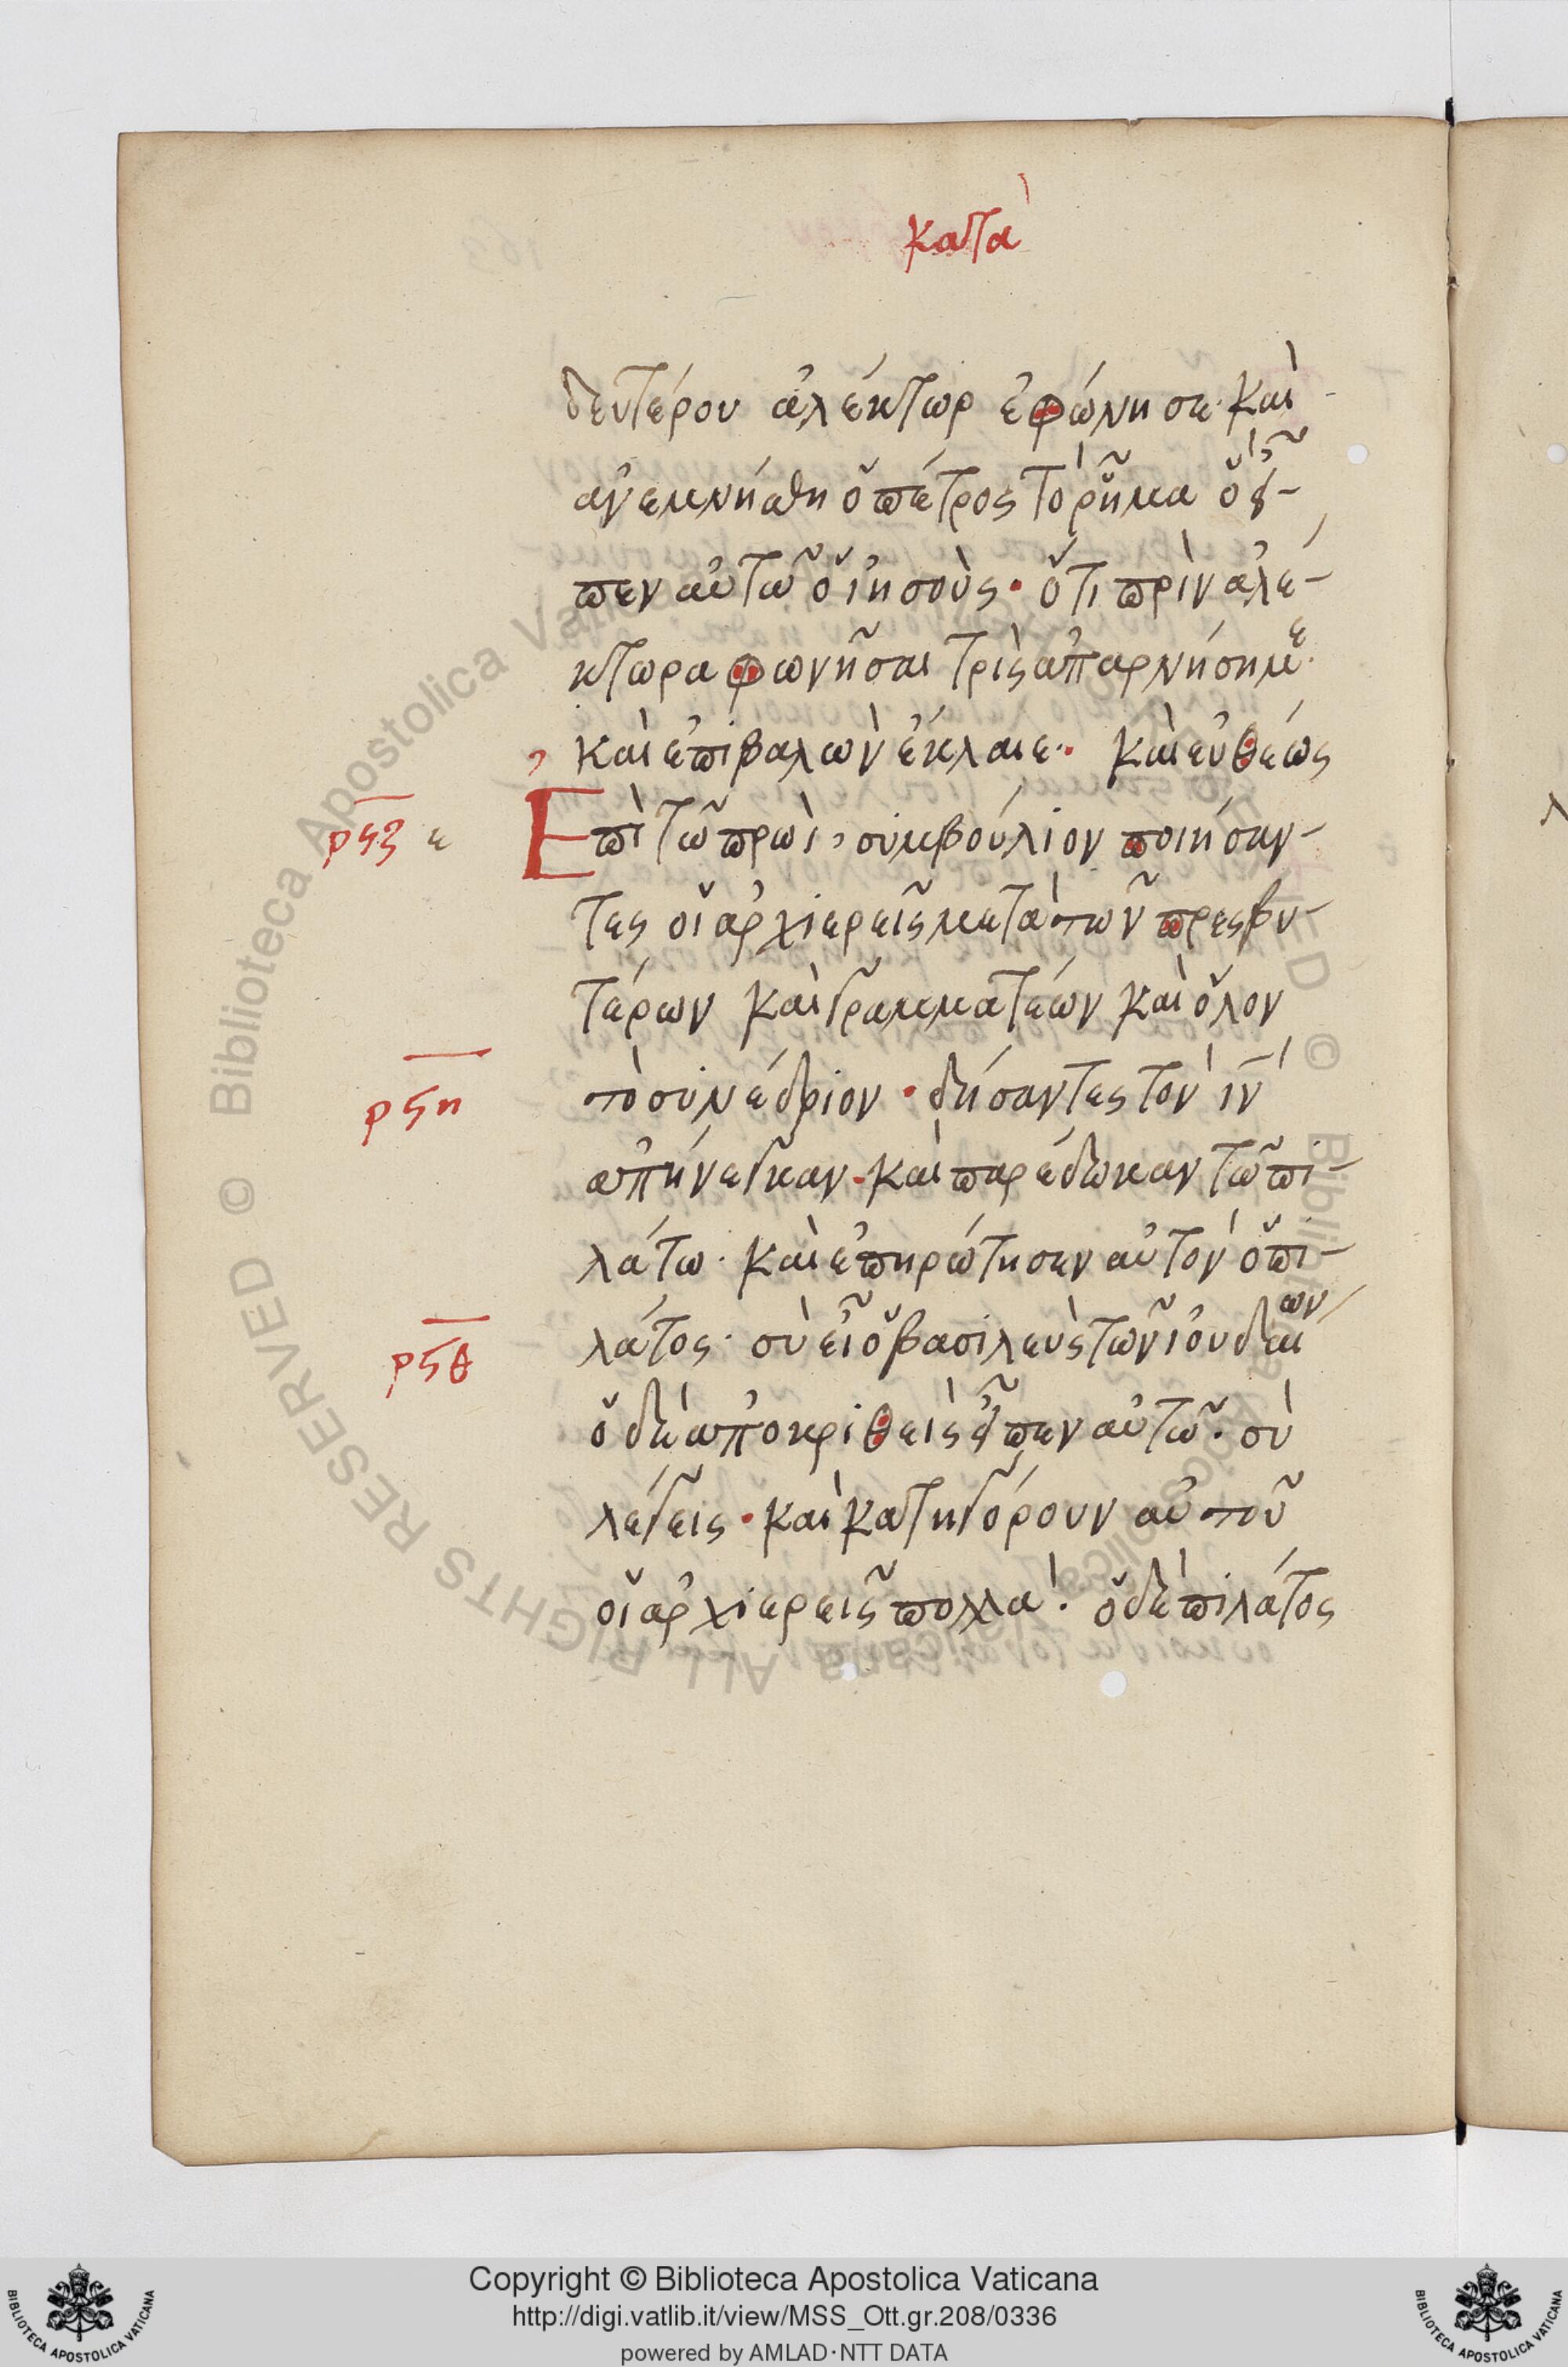 κατὰ
δευτέρου ἀλέκτωρ ἐφώνησε· καὶ
ἀνεμνήσθη ὁ πέτρος τὸ ῥῆμα ὃ εἶ-
πεν αὐτῶ ὁ ἰησοὺς· ὅτι πρὶν ἀλέ-
κτωρα φωνῆσαι τρὶς ἀπαρνήση με·
καὶ ἐπιβαλὼν ἔκλαιε·· καὶ εὐθέως
ρϟζ ε Ἐπὶ τῶ πρωὶ, συμβούλιον ποιήσαν-
τες οἱ ἀρχιερεῖς μετὰ τῶν πρεσβυ-
τέρων καὶ γραμματέων καὶ ὅλον
ρϟη τὸ συνέδριον· δήσαντες τὸν ἰν
ἀπήνεγκαν· καὶ παρέδωκαν τῶ πι-
λάτω· καὶ ἐπηρώτησεν αὐτὸν ὁ πι-
ρϟθ λάτος· σὺ εἶ ὁ βασιλεὺς τῶν ἰουδαίων
ὁ δὲ ἀποκριθεὶς εἶπεν αὐτῶ· σὺ
λέγεις· καὶ κατηγόρουν αὐτοῦ
οἱ ἀρχιερεῖς πολλὰ· ὁ δὲ πιλάτος
Copyright © Biblioteca Apostolica Vaticana
http://digi.vatlib.it/view/MSS_Ott.gr.208/0336
powered by AMLAD·NTT DATA
BIBLIOTECA APOSTOLICA VATICANA
BIBLIOTECA APOSTOLICA VATICANA